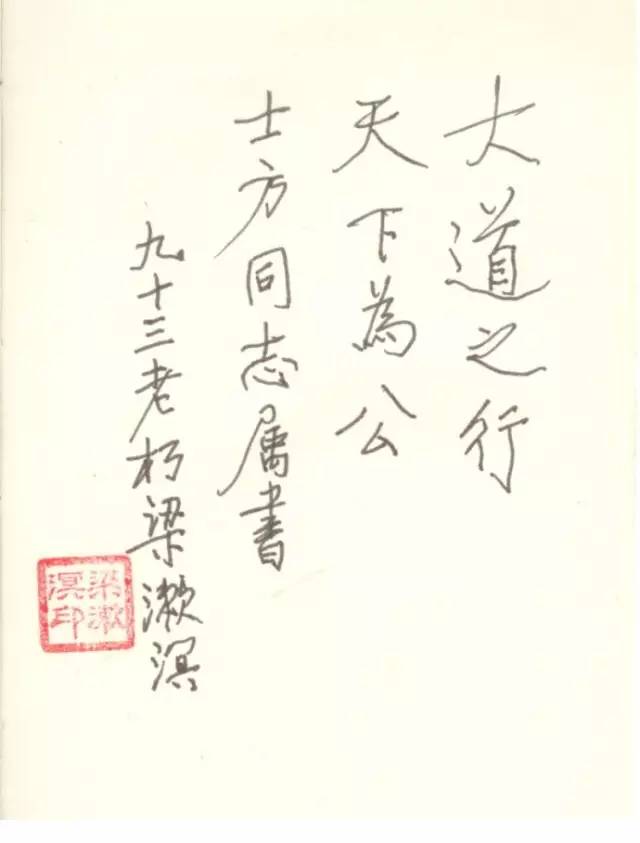 大道之行
天下為公
士方同志属書
九十三老朽梁漱溟
梁漱溟印